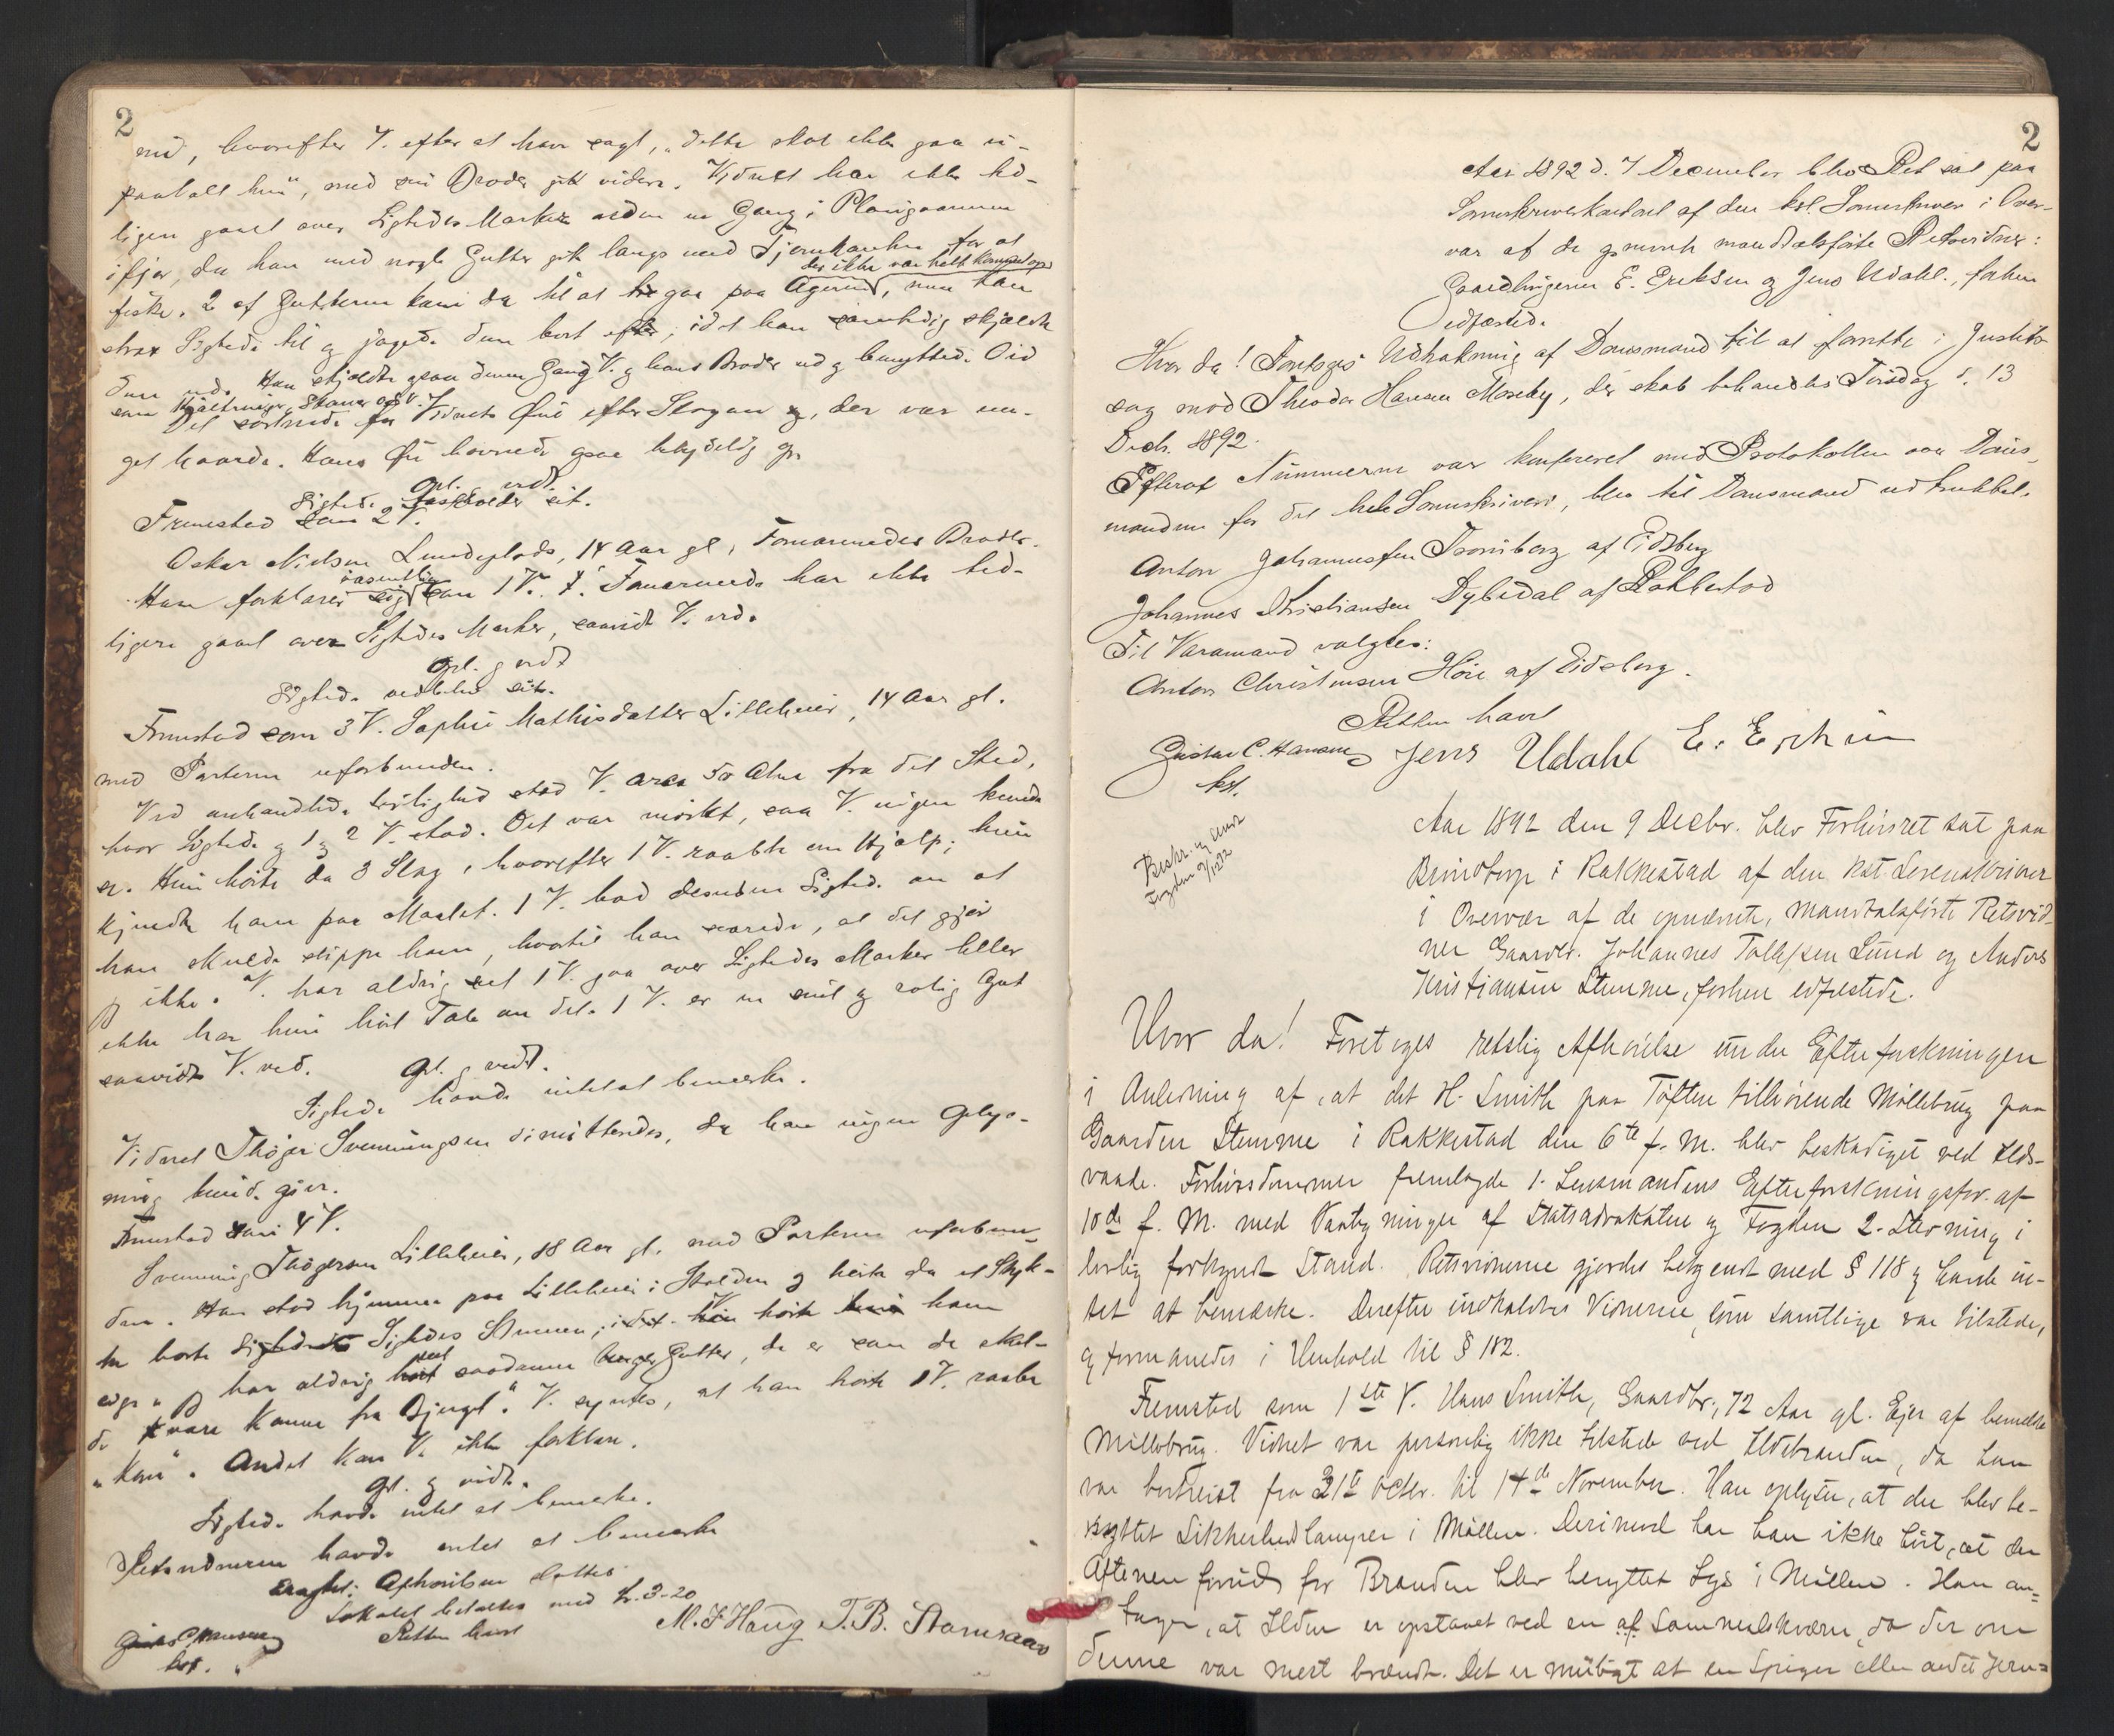 2
med, hvorefter V. efter at have sagt, „dette skal ikke gaa u-
paatalt hen", med sin Broder gik videre. Vidnet har ikke tid-
ligere gaaet over Sigtedes Marker uden en Gang i Plaugaannen
ifjor, da han med nogle Gutter gik langs med Tjernkanten for at
der ikke var helt kommet op
fiske. 2 af Gutterne kom da til at gaa paa Ageren, men han
strax Sigtede til og jagede dem bort efter, idet han samtidig skjældte
dem ud. Han skjældte paa denne Gang V. og hans Broder ud og benyttede Ord
som Kjæltringer, Skarver o.s.v.
Det sortnede for Vidnets Øie efter Slagene, der var me-
get haarde. Hans Øie hovnede paa betydelig op.
Opl. vedt.
Sigtede fastholder sit.
Fremstod som 2 V.
Oskar Nielsen Lundeplads, 14 Aar gl, Fornærmedes Broder.
Han forklarer væsentlig som 1 V. Fornærmede har ikke tid-
ligere gaaet over Sigtedes Marker, saavidt V. ved.
Opl. og vedt
Sigtede vedblev sit.
Fremstod som 3 V. Sophie Mathisdatter Lilleheier, 14 Aar gl.
med Parterne uforbunden.
Ved omhandlede Leilighed stod V. circa 50 Alen fra det Sted,
hvor Sigtede og 1 og 2 V. stod. Det var mørkt, saa V. ingen kunde
se. Hun hørte da 3 Slag, hvorefter 1 V. raabte om Hjælp; hun
kjendte ham paa Maalet. 1 V. bad desuden Sigtede om at
han skulde slippe ham, hvortil han svarede, at det gjør
jeg ikke. V. har aldrig set 1 V. gaa over Sigtedes Marker heller
ikke har hun hørt Tale om det. 1 V. er en snil og rolig Gut
saavidt V. ved. Opl. og vedt.
Sigtede havde intet at bemærke.
Vidnet Thøger Svenningsen dimitteredes, da han ingen Oplys-
ning kunde give.
Fremstod som 4 V.
Svenning Thøgersen Lilleheier, 18 Aar gl. med Parterne uforbun-
den. Han stod hjemme paa Lilleheier i Stalden og hørte da et Styk-
ke borte Sigtedes Stemme, idet V. hørte ham
sige „jeg har aldrig set saadanne Gutter, de er som de skul-
de være komne fra Bjuget". V. syntes, at han hørte 1 V. raabe
„Kom". Andet kan V. ikke forklare.
Opl. og vedt.
Sigtede havde intet at bemærke.
Retsvidnerne havde intet at bemærke
Afhørelsen sluttes
Lokalet betaltes med Kr. 3-20
Retten hævet
Gustav C. Hansen M. J. Haug T. B. Stamsaas
kst.
2
Aar 1892 d. 7 December blev Ret sat paa
Sorenskriverkontoret af den kst. Sorenskriver i Over-
vær af de opnævnte mandtalsførte Retsvidner:
Gaardbrugerne E. Eriksen og Jens Udahl, forhen
edfæstede.
Hvor da! Foretoges Udtrækning af Domsmænd til at forrette i Justits
sag mod Theodor Hansen Moseby, der skal behandles Tirsdag d. 13
Decb. 1892.
Efterat Nummerne var konfereret med Protokollen over Doms-
mændene for det hele Sorenskriveri, blev til Domsmænd udtrukket.
Anton Johannessen Tronsborg af Eidsberg
Johannes Kristiansen Dybedal af Rakkestad
Til Varamand valgtes:
Anton Christensen Høie af Eidsberg.
Retten hævet
Gustav C. Hansen Jens Udahl E. Eriksen
kst.
Beskr. og sendt
Fogden 9/12 92
Aar 1892 den 9 Decbr. blev Forhørsret sat paa
i Rakkestad af den kst. Sorenskriver
i Overvær af de opnævnte, mandtalsførte Retsvid-
ner Gaardbr. Johannes Tollefsen Lund og Anders
Kristiansen Stemme, forhen edfæstede.
Hvor da! Foretoges retslig Afhørelse under Efterforskningen
i Anledning af, at det H. Smith paa Toften tilhørende Møllebrug paa
Gaarden Stemme i Rakkestad den 6te f. M. blev beskadiget ved Ilds-
vaade. Forhørsdommeren fremlagde 1. Lensmandens Efterforskningsfor. af
10de f. M. med Paategninger af Statsadvokaten og Fogden 2. Stevning i
lovlig forkyndt Stand. Retsvidnerne gjordes bekjendt med § 118 og havde in-
tet at bemærke. Derefter indkaldtes Vidnerne, som samtlige var tilstede,
og formanedes i Henhold til § 182.
Fremstod som 1ste V. Hans Smith, Gaardbr., 72 Aar gl. Ejer af bemeldte
Møllebrug. Vidnet var personlig ikke tilstede ved Ildebranden, da han
var bortreist fra 31te Octbr. til 14de November. Han oplyste, at der blev be-
nyttet Sikkerhedslamper i Møllen. Derimod har han ikke hørt, at der
Aftenen forud for Branden blev benyttet Lys i Møllen. Han an-
tager, at Ilden er opstaaet ved en af Sammelskværn, da der om
denne var mest brændt. Det er muligt at en Spiger eller andet Jern-